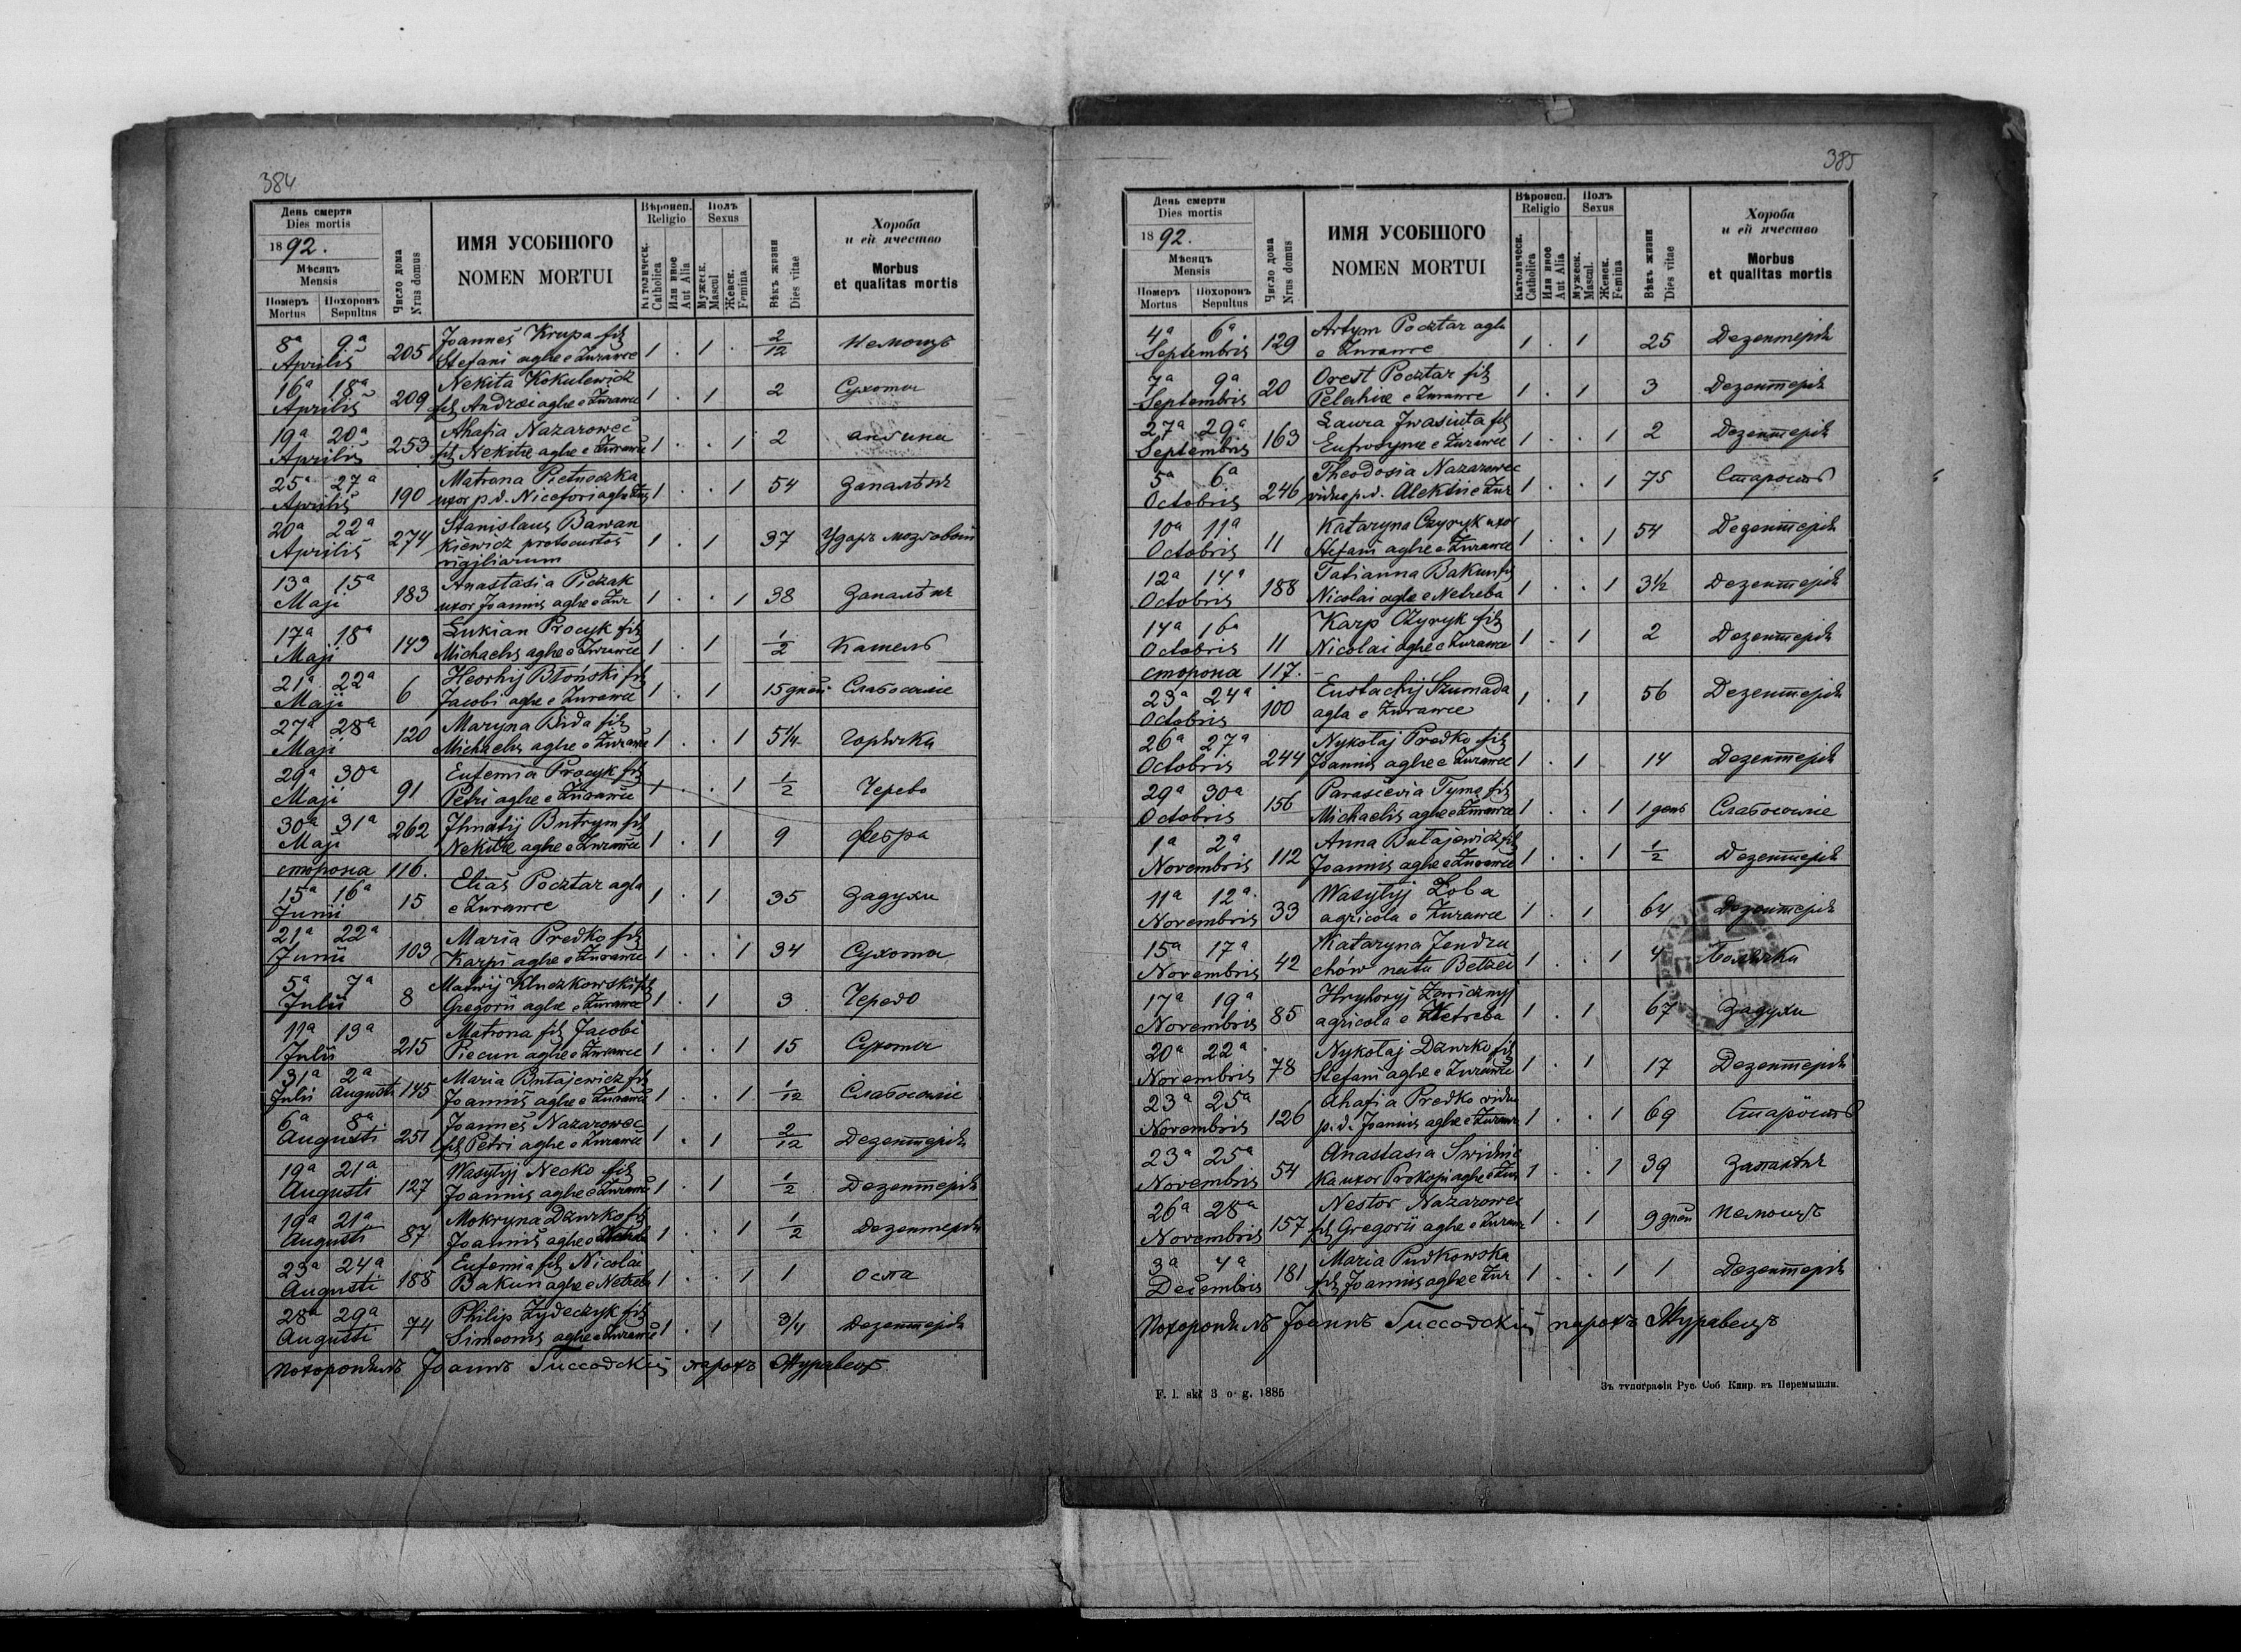 384
День смерти
Dies mortis
1892.
Мѣсяць
Mensis
Померъ Похоронъ
Mortus Sepultus
Число дома
Nrus domus
ИМЯ УСОБШОГО
NOMEN MORTUI
Вѣроисп.
Religio
Католическ.
Catholica
Или иное
Aut Alia
Полъ
Sexus
Мужеск.
Mascul
Женск.
Femina
Вѣкъ жизни
Dies vitae
Хороба
и ей ячество
Morbus
et qualitas mortis
8ª 9ª Aprilis 205 Joannes Krupa fil
Stefani aglae e Żurawce 1 . 1 . 2/12 Немощь
16ª 18ª Aprilis 209 Nekita Kokulewicz
fil Andrei aglae e Żurawce 1 . 1 2 Сухоты
19ª 20ª Aprilis 253 Ahafia Nazarowec
fil Nekitae aglae e Żurawce 1 . . 1 2 ангина
25ª 27ª Aprilis 190 Matrona Pietnoczka
uxor p.d. Nicefori aglae Żur 1 . . 1 54 Запалѣнє
20ª 22ª Aprilis 274 Stanislaus Bawan
kiewicz protocustos
vigiliarum 1 . 1 37 Ударъ мозговый
13ª 15ª Maji 183 Anastasia Piczak
uxor Joannis aglae e Żur 1 . . 1 38 Запалѣнє
17ª 18ª Maji 143 Lukian Procyk fil
Michaelis aglae e Żurawce 1 . 1 1/2 Кашель
21ª 22ª Maji 6 Heorhij Błoński fil
Jacobi aglae e Żurawce 1 . 1 15 дней Слабосиліе
27ª 28ª Maji 120 Maryna Birda fil
Michaelis aglae e Żurawce 1 . . 1 5 1/4 горячка
29ª 30ª Maji 91 Eufemia Procyk fil
Petri aglae e Żurawce 1 . . 1 1/2 Черево
30ª 31ª Maji 262 Ihnatij Butrym fil
Nekitae aglae e Żurawce 1 . 1 9 фебра
сторона 116.
15ª 16ª Junii 15 Elias Pocztar agla
e Żurawce 1 . 1 35 Задухи
21ª 22ª Junii 103 Maria Predko fil
Karpi aglae e Żurawce 1 . . 1 34 Сухоты
5ª 7ª Julii 8 Kluczkowski fil
Gregorii aglae e Żurawce 1 . 1 3 Черево
11ª 13ª Julii 215 Matrona fil Jacobi
Piecun aglae e Żurawce 1 . . 1 15 Сухоты
31ª 2ª Julii Augusti 145 Maria Butajewicz fil
Joannis aglae e Żurawce 1 . . 1 1/12 Слабосиліе
6ª 8ª Augusti 251 Joannes Nazarowec
fil Petri aglae e Żurawce 1 . 1 2/12 Дезентерія
19ª 21ª Augusti 127 Wasylyj Necko fil
Joannis aglae e Żurawce 1 . 1 1/2 Дезентерія
19ª 21ª Augusti 87 Mokryna Dzurko fil
Joannis aglae e 1 . . 1 1/2 Дезентерія
23ª 24ª Augusti 188 Eufemia fil Nicolai
Bakun aglae e Netreba 1 . . 1 1 Оспа
28ª 29ª Augusti 74 Philip Żydeczyk fil
Simeonis aglae e Żurawce 1 . 1 3/4 Дезентерія
Похоронилъ Іоаннъ парохъ Журавецъ
385
День смерти
Dies mortis
1892.
Мѣсяць
Mensis
Померъ Похоронъ
Mortus Sepultus
Число дома
Nrus domus
ИМЯ УСОБШОГО
NOMEN MORTUI
Вѣроисп.
Religio
Католическ.
Catholica
Или иное
Aut Alia
Полъ
Sexus
Мужеск.
Mascul.
Женск.
Femina
Вѣкъ жизни
Dies vitae
Хороба
и ей ячество
Morbus
et qualitas mortis
4ª 6ª Septembris 129 Artym Pocztar agla
e Żurawce 1 . 1 25 Дезентерія
7ª 9ª Septembris 20 Orest Pocztar fil
Pelahiae e Żurawce 1 . 1 3 Дезентерія
27ª 29ª Septembris 163 Laura Iwasiuta fil
Eufrosynae e Żurawce 1 . . 1 2 Дезентерія
5ª 6ª Octobris 246 Theodosia Nazarowec
vidua p.d. Alektii e Żur 1 . . 1 75 Старость
10ª 11ª Octobris 11 Kataryna Czyryk uxor
Stefani aglae e Żurawce 1 . . 1 54 Дезентерія
12ª 14ª Octobris 188 Tatianna Bakun fil
Nicolai aglae e Netreba 1 . . 1 3½ Дезентерія
14ª 16ª Octobris 11 Karp Czyryk fil
Nicolai aglae e Żurawce 1 . 1 2 Дезентерія
сторона 117.
23ª 24ª Octobris 100 Eustachij Szumada
agla e Żurawce 1 . 1 56 Дезентерія
26ª 27ª Octobris 244 Nykołaj Predko fil
Joannis aglae e Żurawce 1 . 1 14 Дезентерія
29ª 30ª Octobris 156 Parascevia Tyma fil
Michaelis aglae e Żurawce 1 . . 1 1 день Слабосиліе
1ª 2ª Novembris 112 Anna Butajewicz fil
Joannis aglae e Żurawce 1 . . 1 1/2 Дезентерія
11ª 12ª Novembris 33 Wasylyj Zoba
agricola e Żurawce 1 . 1 64 Дезентерія
15ª 17ª Novembris 42 Kataryna Jendru
chów nata Betzeć 1 . . 1 4 Болячки
17ª 19ª Novembris 85 Hryhoryj
agricola e Netreba 1 . 1 67 Задухи
20ª 22ª Novembris 78 Nykołaj Dzurko fil
Stefani aglae e Żurawce 1 . 1 17 Дезентерія
23ª 25ª Novembris 126 Ahafia Predko vidua
p.d. Joannis aglae e Żurawce 1 . . 1 69 Старость
23ª 25ª Novembris 54 Anastasia Swidnic
ka uxor Prokopi aglae e Żur 1 . . 1 39 Запалѣнє
26ª 28ª Novembris 157 Nestor Nazarowec
fil Gregorii aglae e Żurawce 1 . 1 9 дней Немощь
3ª 4ª Decembris 181 Maria Pudkowska
fil Joannis aglae e Żur 1 . . 1 1 Дезентерія
Похоронилъ Іоаннъ парохъ Журавецъ
F. l. skł 3 o g. 1885
Зъ типографіи Рус. Соб Клир. въ Перемышли.